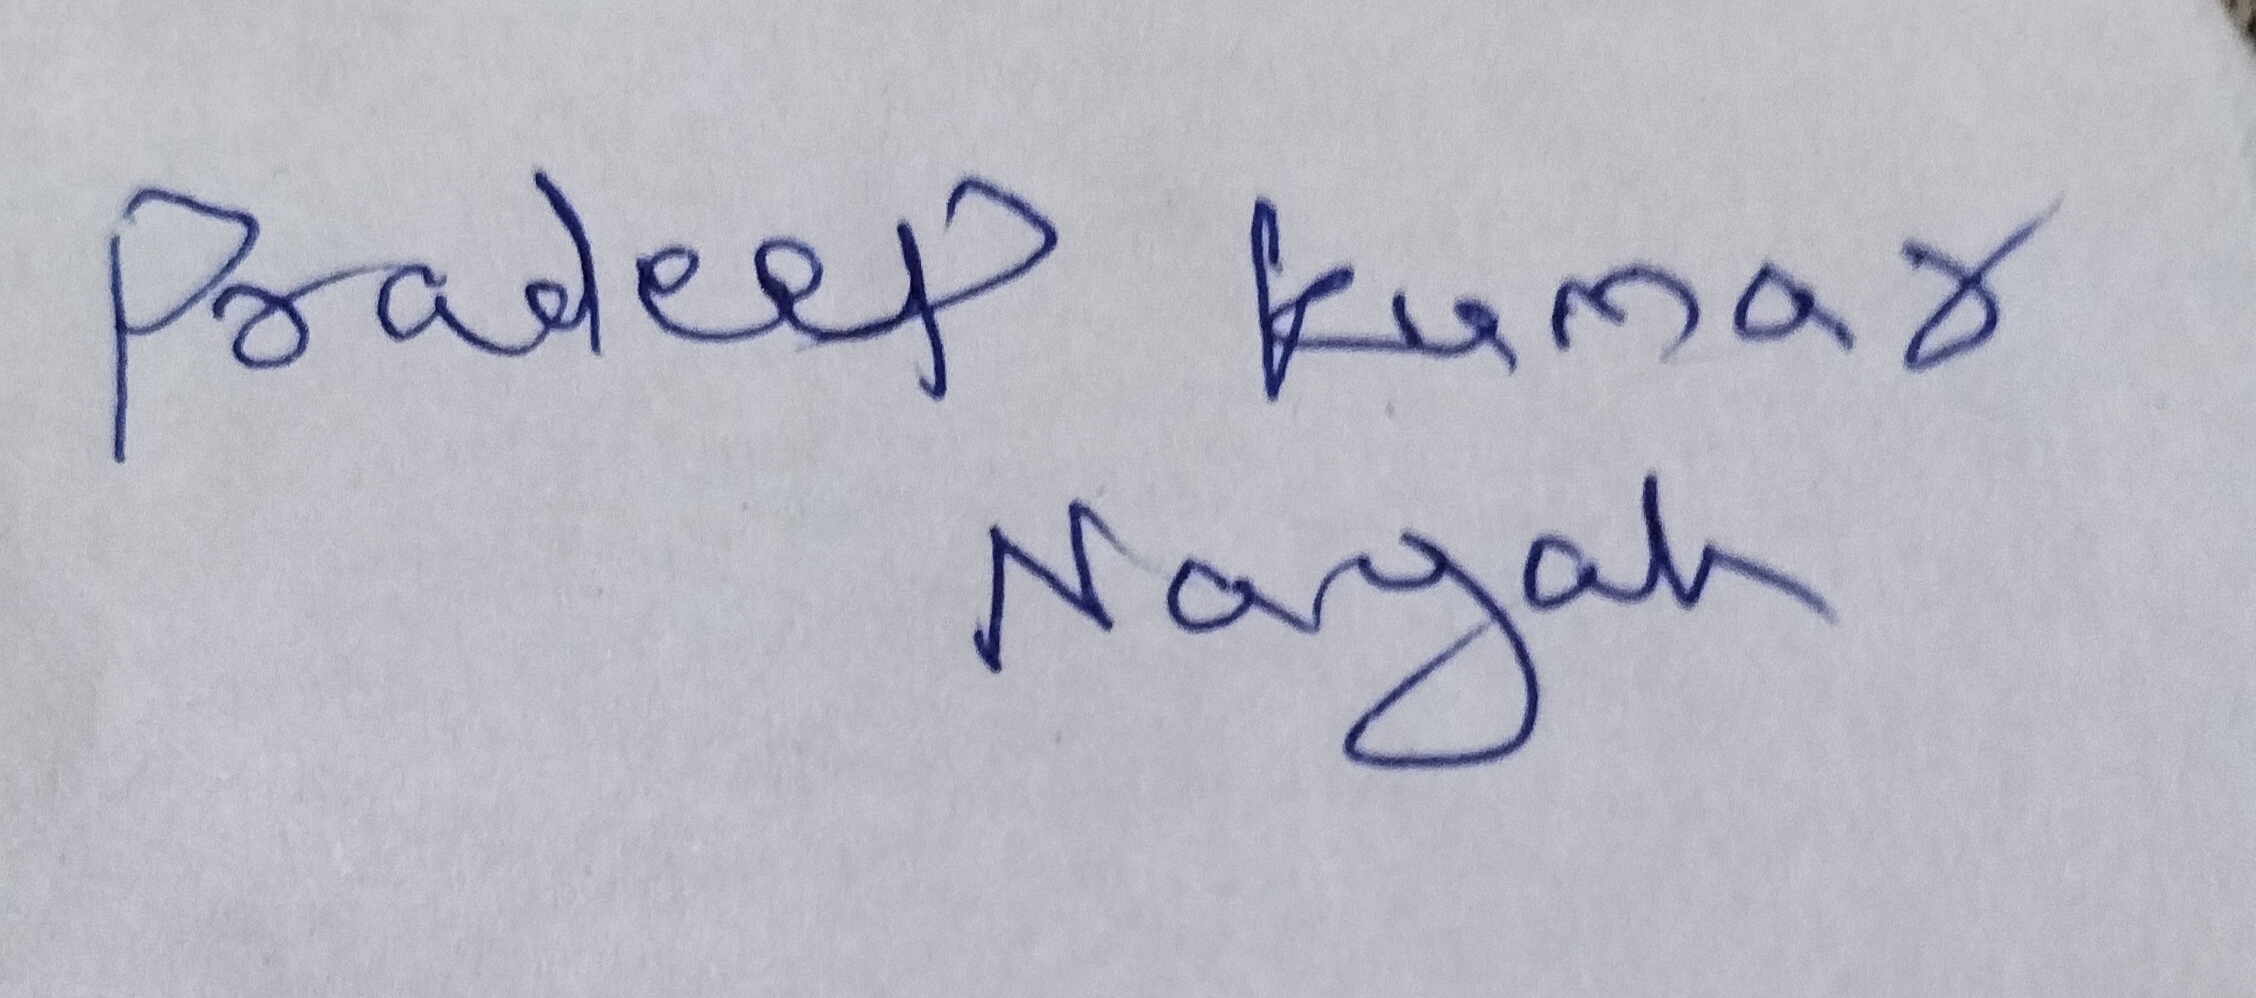 Pradeep Kumar
Nayak